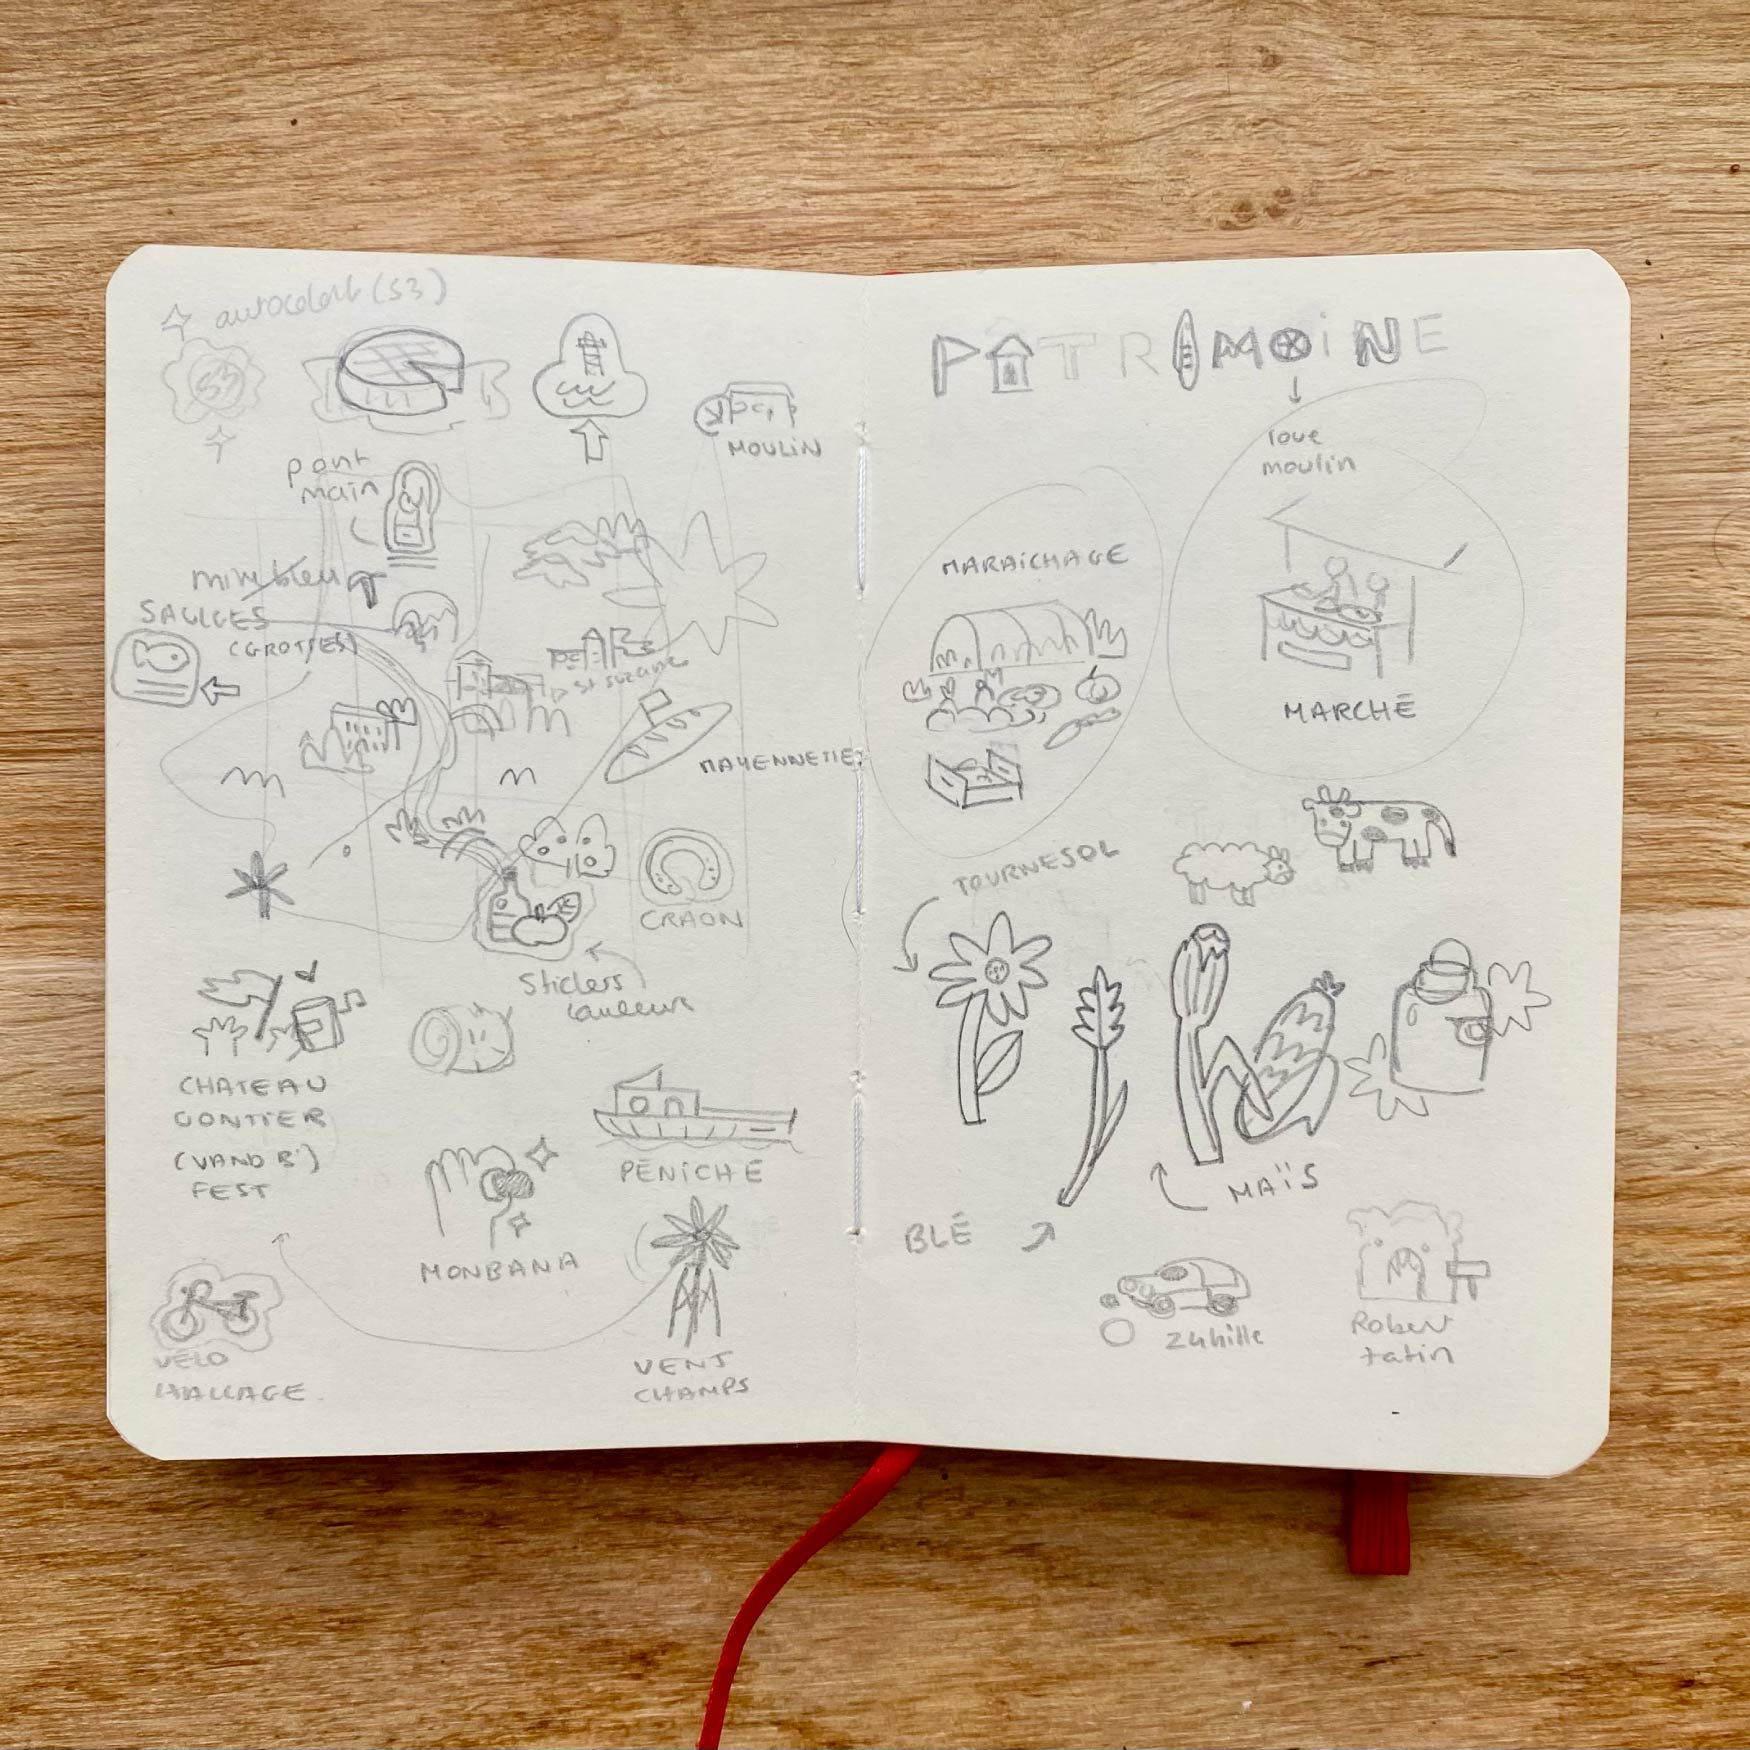 autocolant (53)
53
MOULIN
pont
main
mimbleu
SAULGES
(GROTTES)
st suzanne
MAYENNETTE
CRAON
Stickers
couleur
CHATEAU
GONTIER
(VAND B')
FEST
PÉNICHE
MONBANA
VÉLO
HALLAGE
VENT
CHAMPS
PATRIMOINE
roue
moulin
MARAÎCHAGE
MARCHÉ
TOURNESOL
MAÏS
BLÉ
Robert
tatin